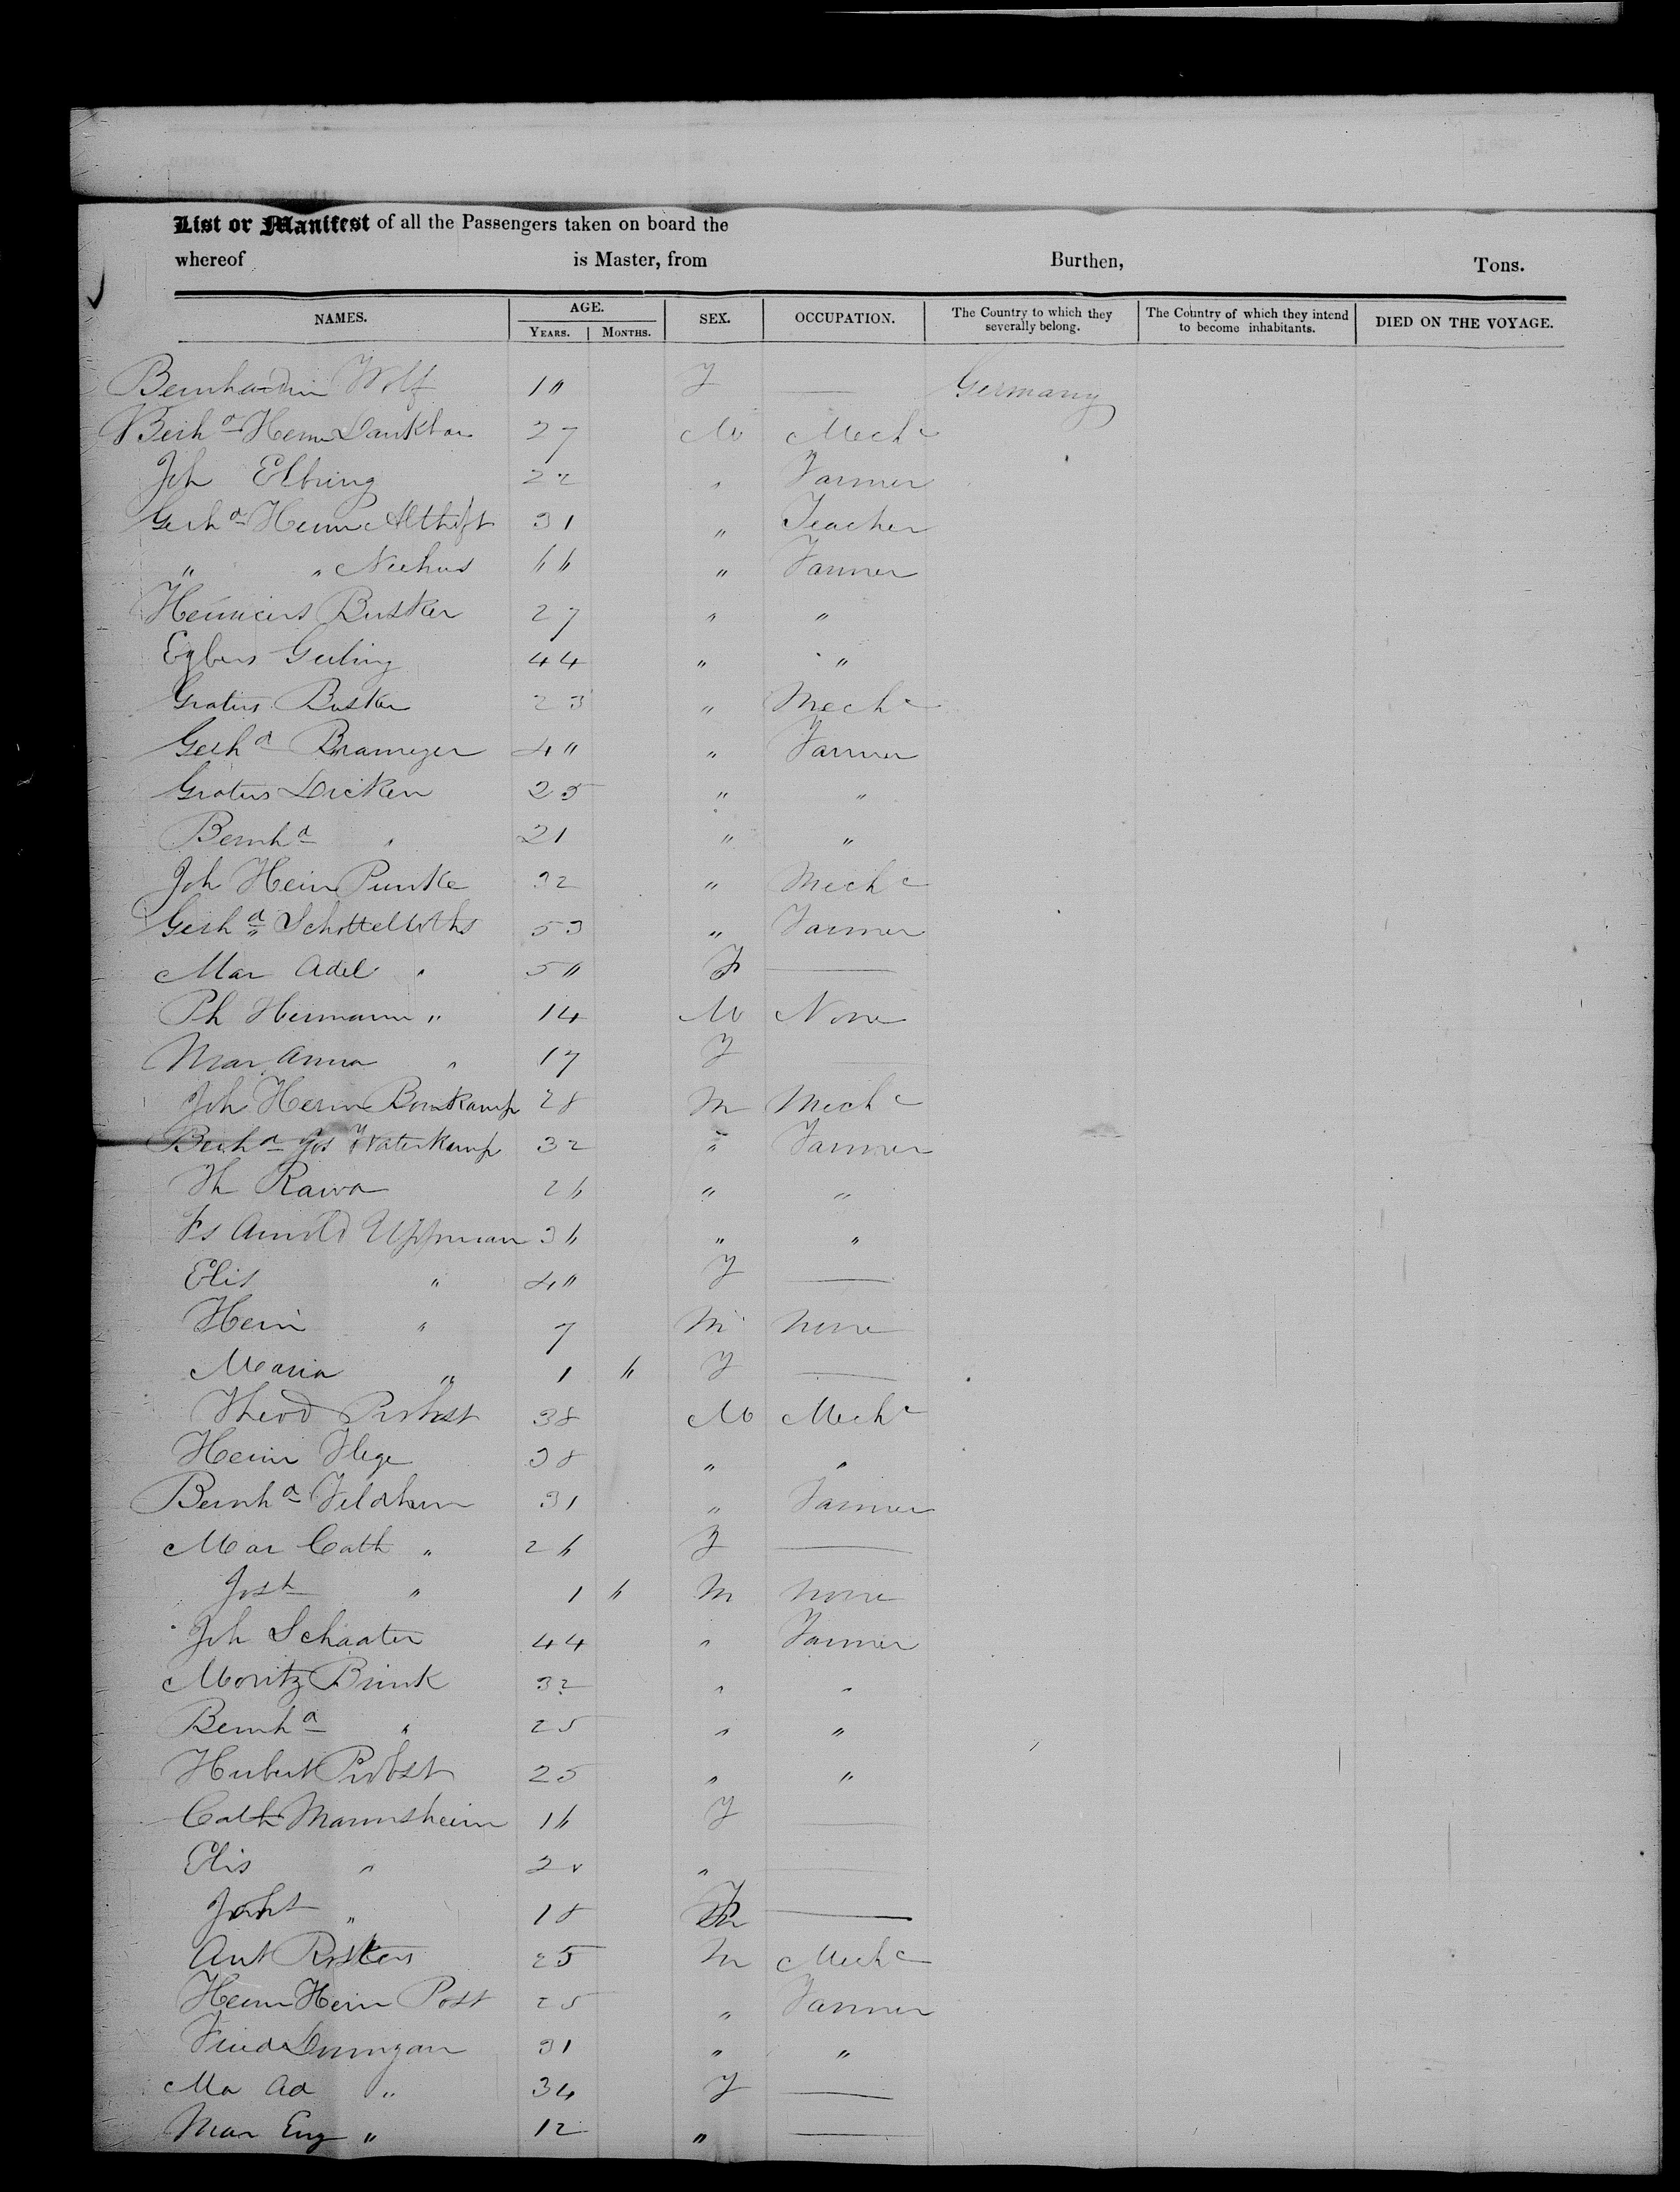 List or Manifest of all the Passengers taken on board the
whereof is Master, from Burthen, Tons.
NAMES. AGE. SEX. OCCUPATION. The Country to which they severally belong. The Country of which they intend to become inhabitants. DIED ON THE VOYAGE.
YEARS. MONTHS.
Bernhardin Wolf 1" F — Germany
Herm 27 M Mechc
Joh Elbring 22 " Farmer
Gerhd 31 " Teacher
" " Niehus 66 " Farmer
Busker 27 " "
Geeling 44 " "
Gratus Busker 23 " Mechc
Gerhd Brameyer 4" " Farmer
Gratus Dicken 25 " "
Bernhd " 21 " "
Joh Hein Punke 32 " Mechc
Gerhd 53 " Farmer
Mar Adel " 5" F —
Ph Hermann " 14 M None
Mar Anna " 17 F —
Joh Herm 28 M Mechc
Jos Waterkamp 32 " Farmer
Th Rawa 26 " "
Fs Arnold Uppman 36 " "
Elis " 4" F —
Hein " 7 M None
Maria " 1 6 F —
Theod Probst 38 M Mechc
Hege 38 " "
Bernhd 31 " Farmer
Mar Cath " 26 F —
Josh " 1 6 M None
Joh Schaater 44 " Farmer
Moritz Brink 32 " "
Bernhd " 25 " "
Hubert Probst 25 " "
Cath Mannsheim 16 F —
Elis " 2" " —
" 18 F —
Ant 25 M Mechc
Herm Hein Post 25 " Farmer
Fried 31 " "
Ma Ad " 34 F —
Mar Eng " 12 " —